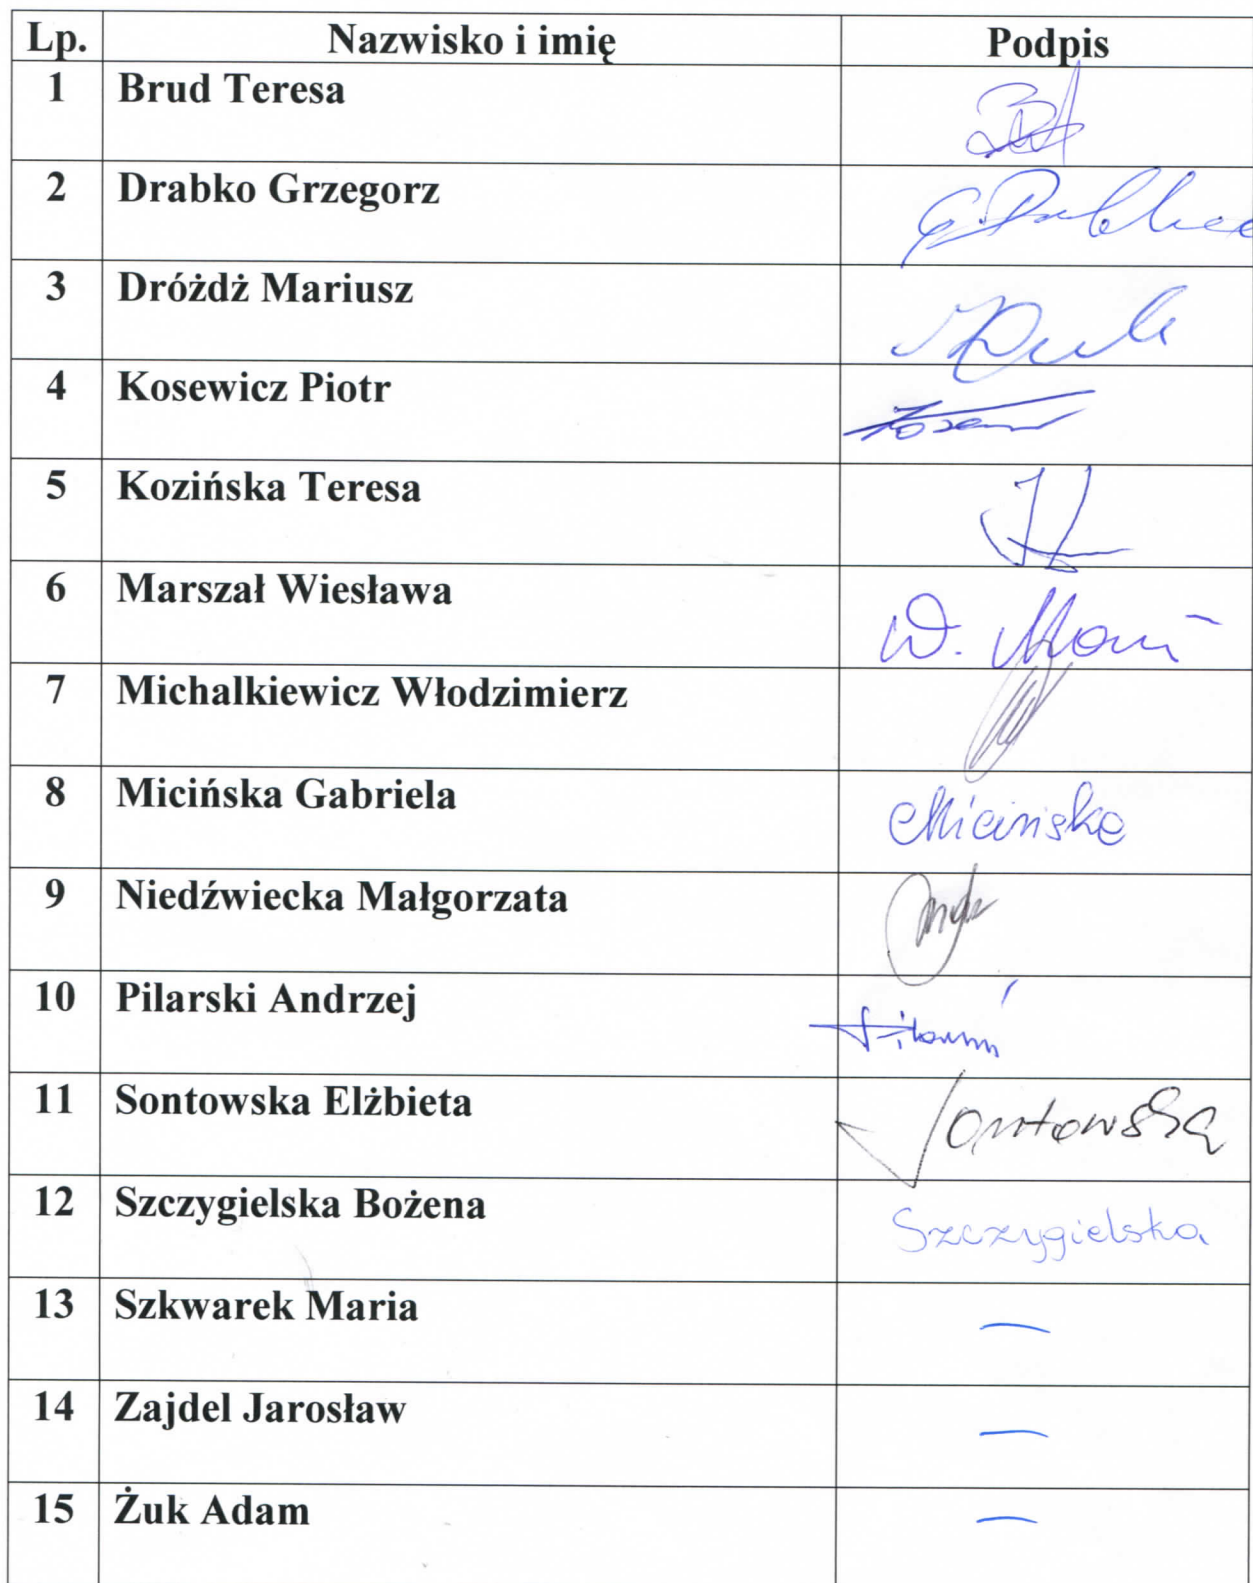 Lp. Nazwisko i imię Podpis
1 Brud Teresa
2 Drabko Grzegorz
3 Dróżdż Mariusz
4 Kosewicz Piotr
5 Kozińska Teresa
6 Marszał Wiesława W.
7 Michalkiewicz Włodzimierz
8 Micińska Gabriela Micińska
9 Niedźwiecka Małgorzata
10 Pilarski Andrzej
11 Sontowska Elżbieta Sontowska
12 Szczygielska Bożena Szczygielska
13 Szkwarek Maria —
14 Zajdel Jarosław —
15 Żuk Adam —